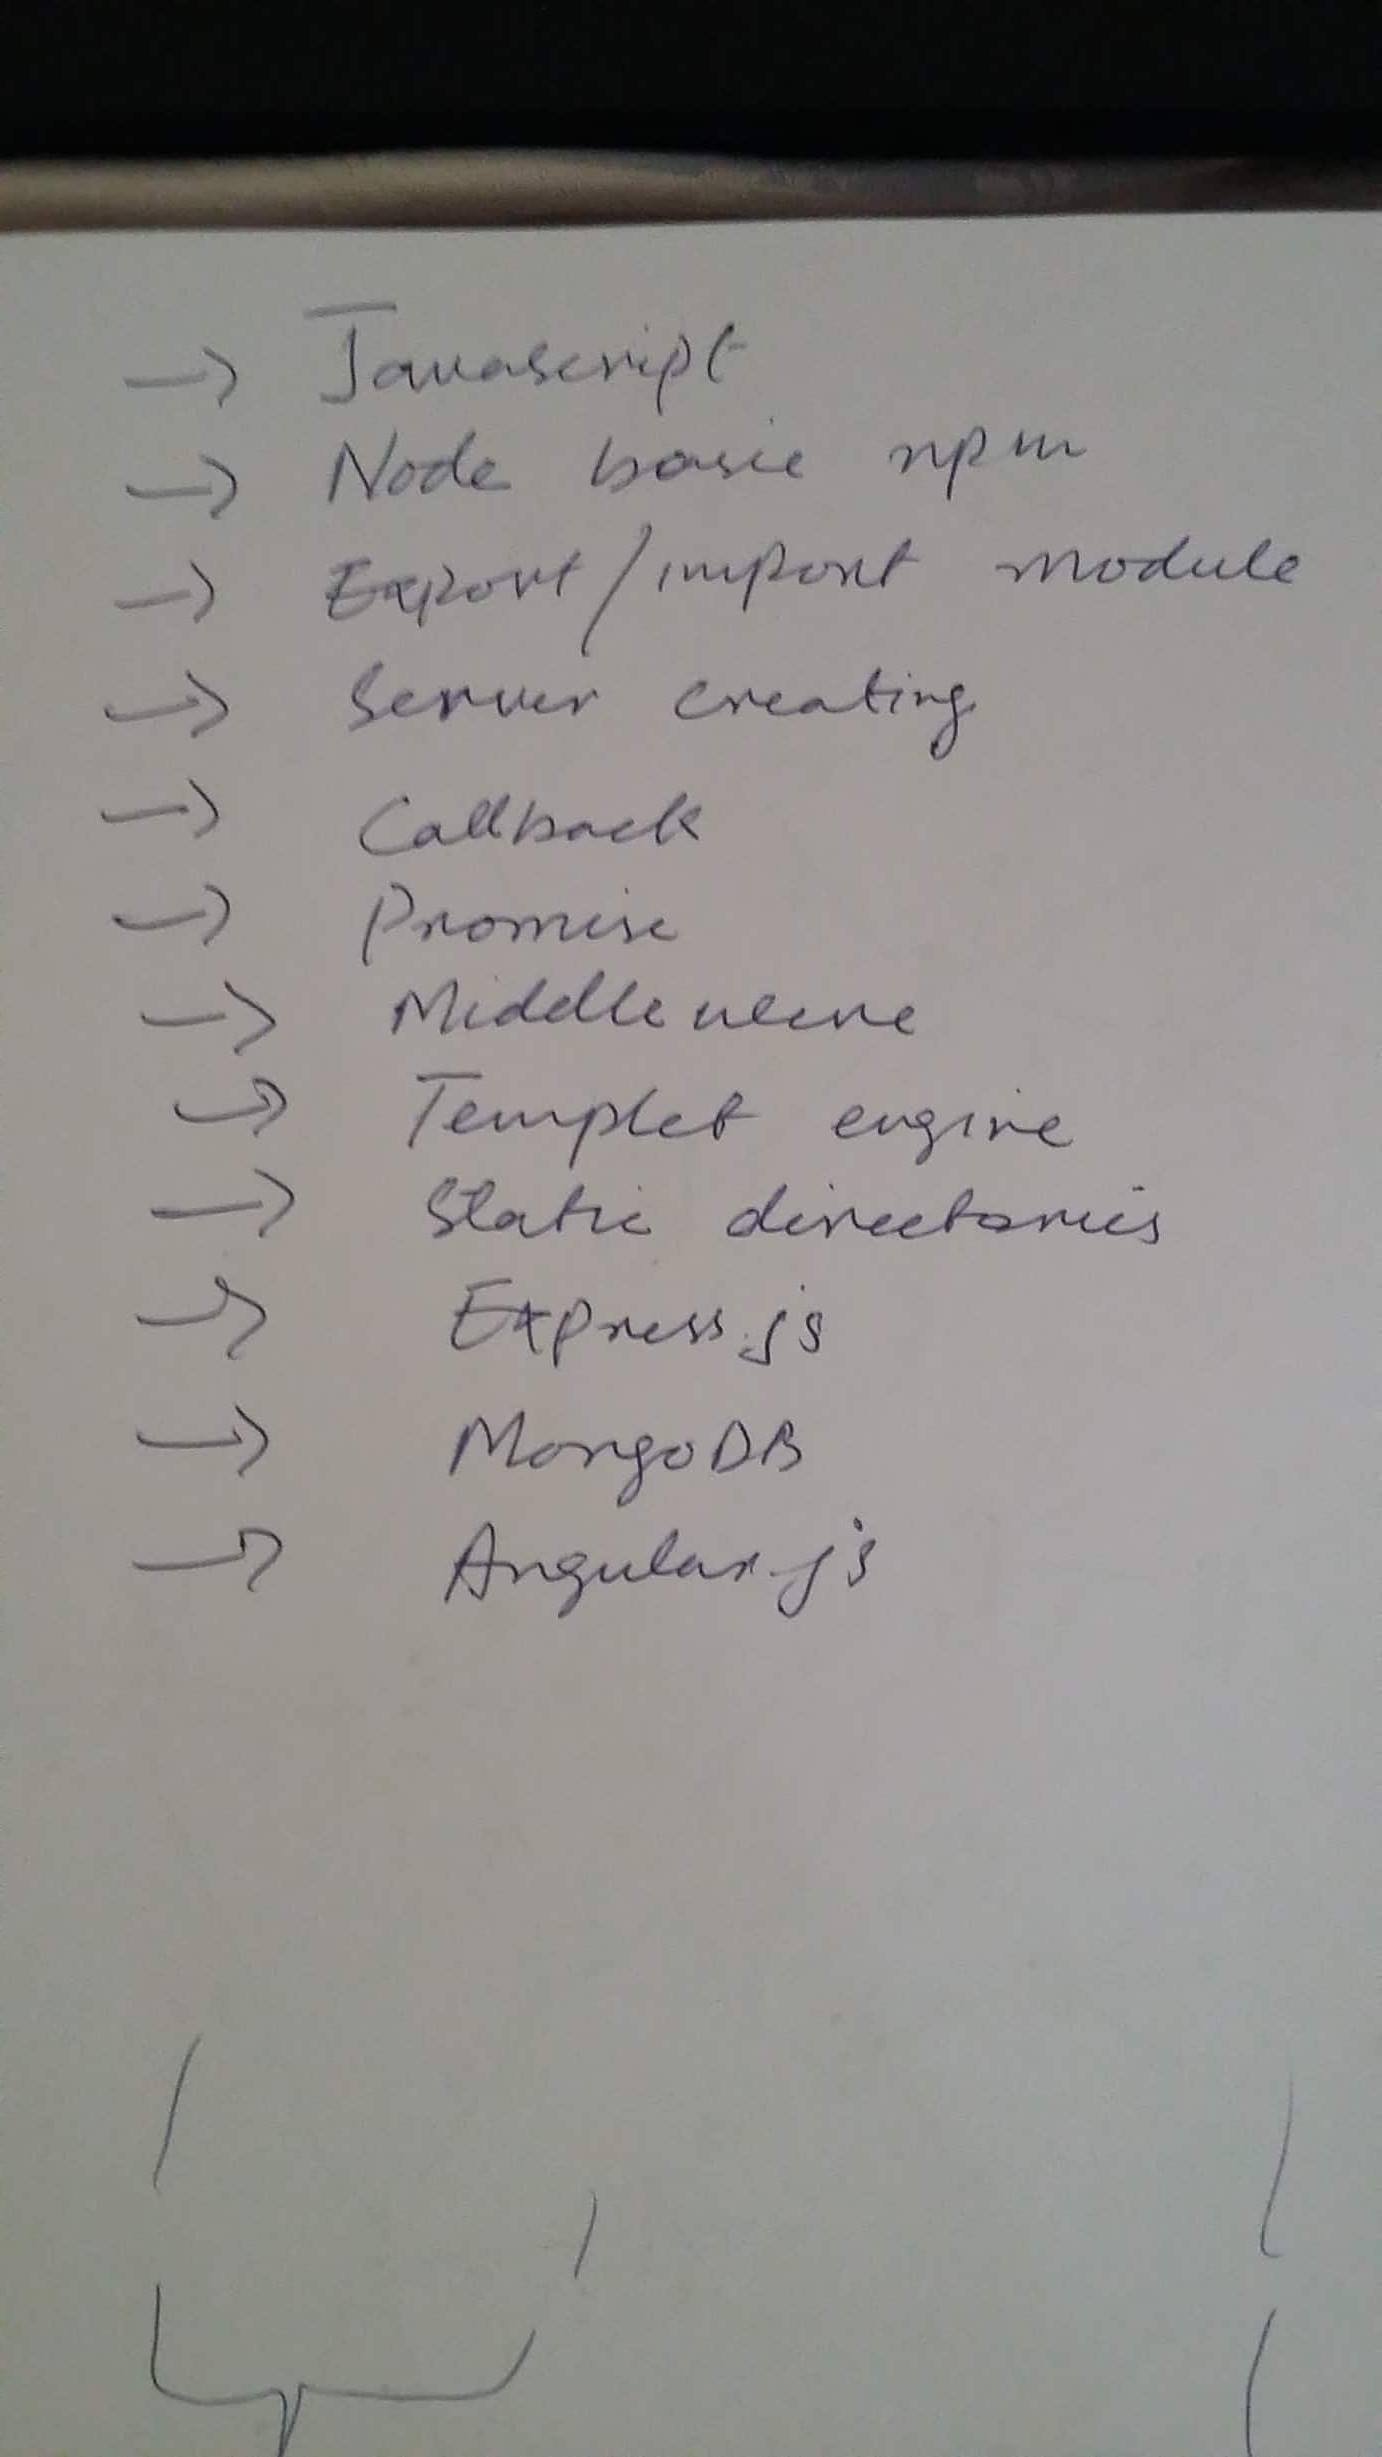 → Javascript
→ Node basic npm
→ Export/import module
→ Server creating
→ Callback
→ Promise
→ Middleware
→ Templet engine
→ Static directories
→ Express.js
→ MongoDB
→ Angular.js